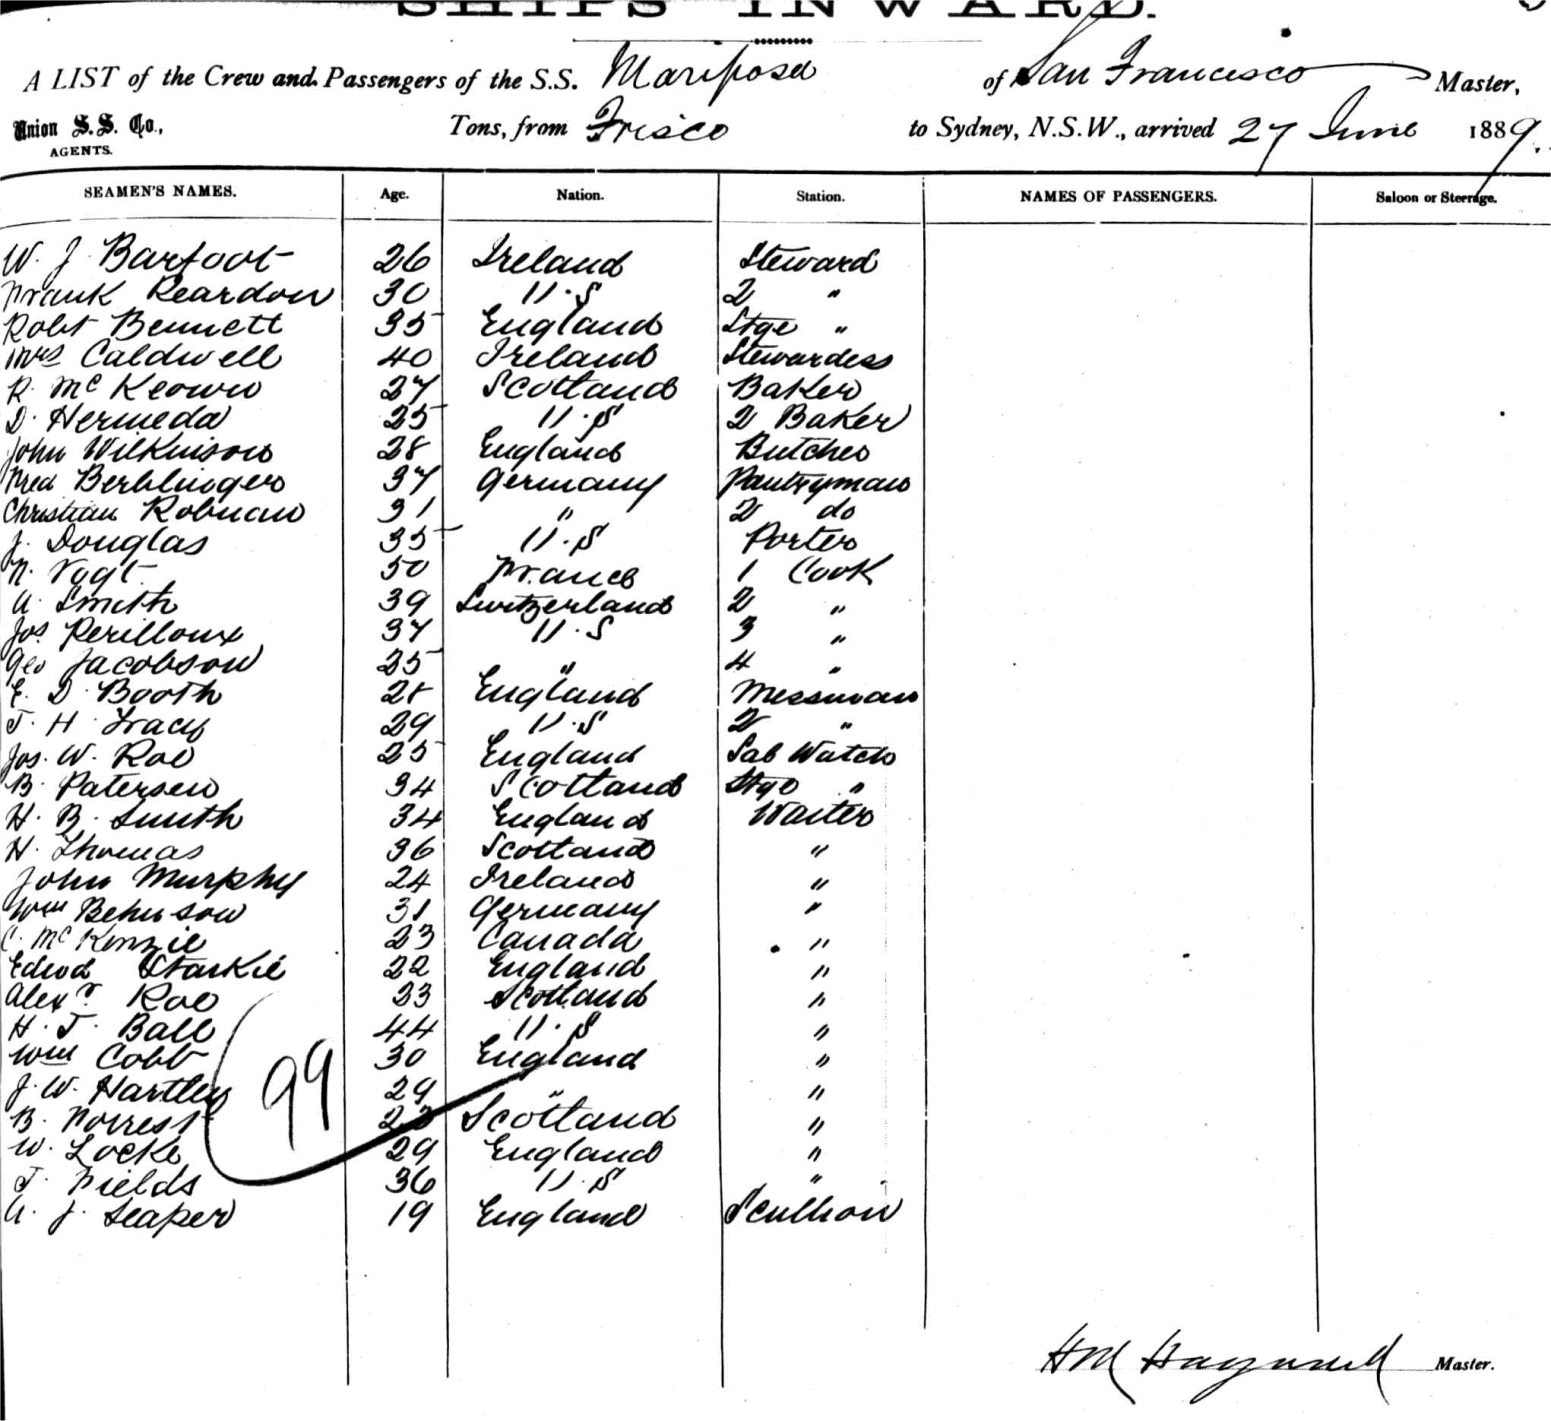 SHIPS INWARD.
A LIST of the Crew and Passengers of the S.S. Mariposa of San Francisco Master,
Union S.S. Co., Tons, from Frisco to Sydney, N.S.W., arrived 27 June 1889.
AGENTS.
SEAMEN'S NAMES. Age. Nation. Station. NAMES OF PASSENGERS. Saloon or Steerage.
W. J. Barfoot 26 Ireland Steward
Frank Reardon 30 U.S 2 "
Robt Bennett 35 England Stge "
Mrs Caldwell 40 Ireland Stewardess
R. McKeown 27 Scotland Baker
D. Hermeda 25 U.S 2 Baker
John Wilkinson 28 England Butcher
Fred Berblinger 37 Germany Pantryman
Christian Robman 31 " 2 do
J. Douglas 35 U.S Porter
N. Vogt 50 France 1 Cook
A. Smith 39 Switzerland 2 "
Jos Perilloux 37 U.S 3 "
Geo Jacobson 25 " 4 "
E. D. Booth 28 England Messman
T. H. Tracy 29 U.S 2 "
Jos. W. Roe 25 England Sal Watch
B. Patersen 34 Scotland Stge "
H. B. Smith 34 England Waiter
H. Thomas 36 Scotland "
John Murphy 24 Ireland "
Wm Behnson 31 Germany "
C. McKenzie 23 Canada "
Edwd Starkie 22 England "
Alexr Rae 23 Scotland "
H. T. Ball 44 U.S "
Wm Cobb 30 England "
J. W. Hartley 29 " "
B. Forrest 23 Scotland "
W. Locke 29 England "
T. Fields 36 U.S "
A. J. Leaper 19 England Scullion
99
HM Hayward Master.